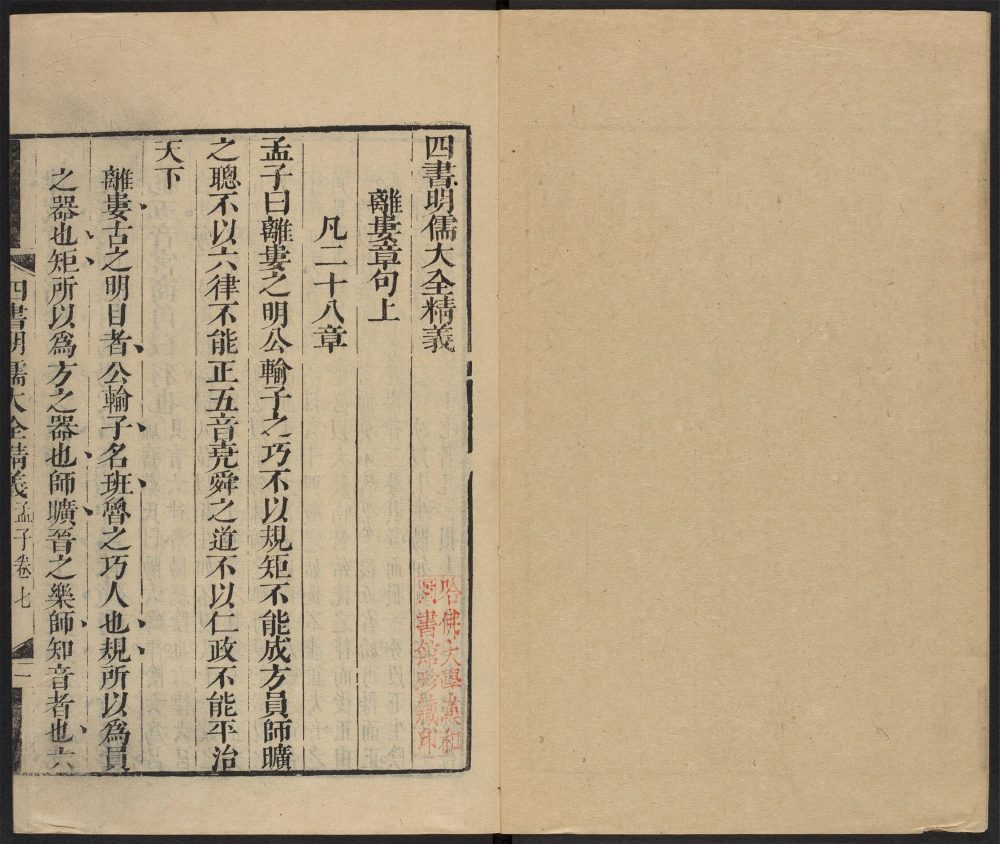 四書明儒大全精義
離婁章句上
凡二十八章
孟子曰離婁之明公輸子之巧不以規矩不能成方員師曠
之聰不以六律不能正五音堯舜之道不以仁政不能平治
天下
離婁古之明目者公輸子名班魯之巧人也規所以爲員
之器也矩所以爲方之器也師曠晉之樂師知音者也六
四書明儒大全精義 孟子卷七 一
哈佛大學漢和
圖書館珍藏印